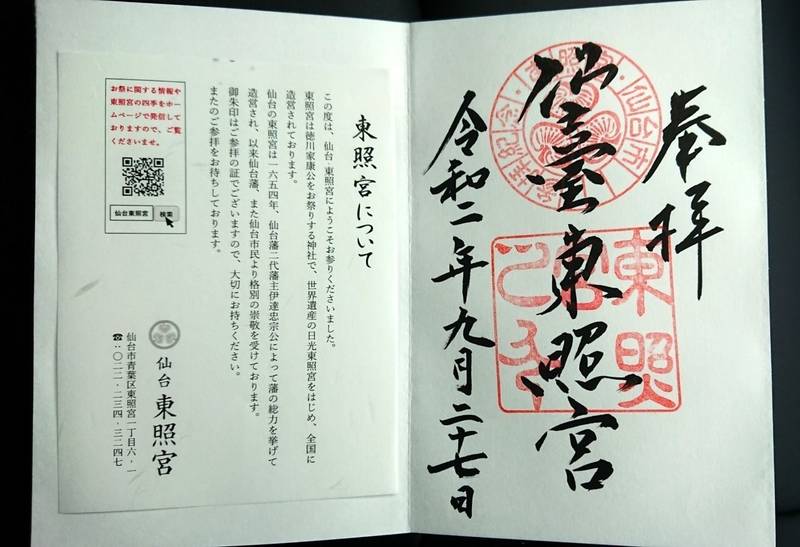 奉拝
仙臺東照宮
令和二年九月二十七日
東照宮
仙台市
東照宮について
この度は、仙台・東照宮にようこそお参りくださいました。
東照宮は徳川家康公をお祭りする神社で、世界遺産の日光東照宮をはじめ、全国に
造営されております。
仙台の東照宮は一六五四年、仙台藩二代藩主伊達忠宗公によって藩の総力を挙げて
造営され、以来仙台藩、また仙台市民より格別の崇敬を受けております。
御朱印はご参拝の証でございますので、大切にお持ちください。
またのご参拝をお待ちしております。
お祭に関する情報や
東照宮の四季をホー
ムページで発信して
おりますので、ご覧
くださいませ。
仙台東照宮 検索
仙台 東照宮
仙台市青葉区東照宮一丁目六‐一
☎:〇二二‐二三四‐三二四七